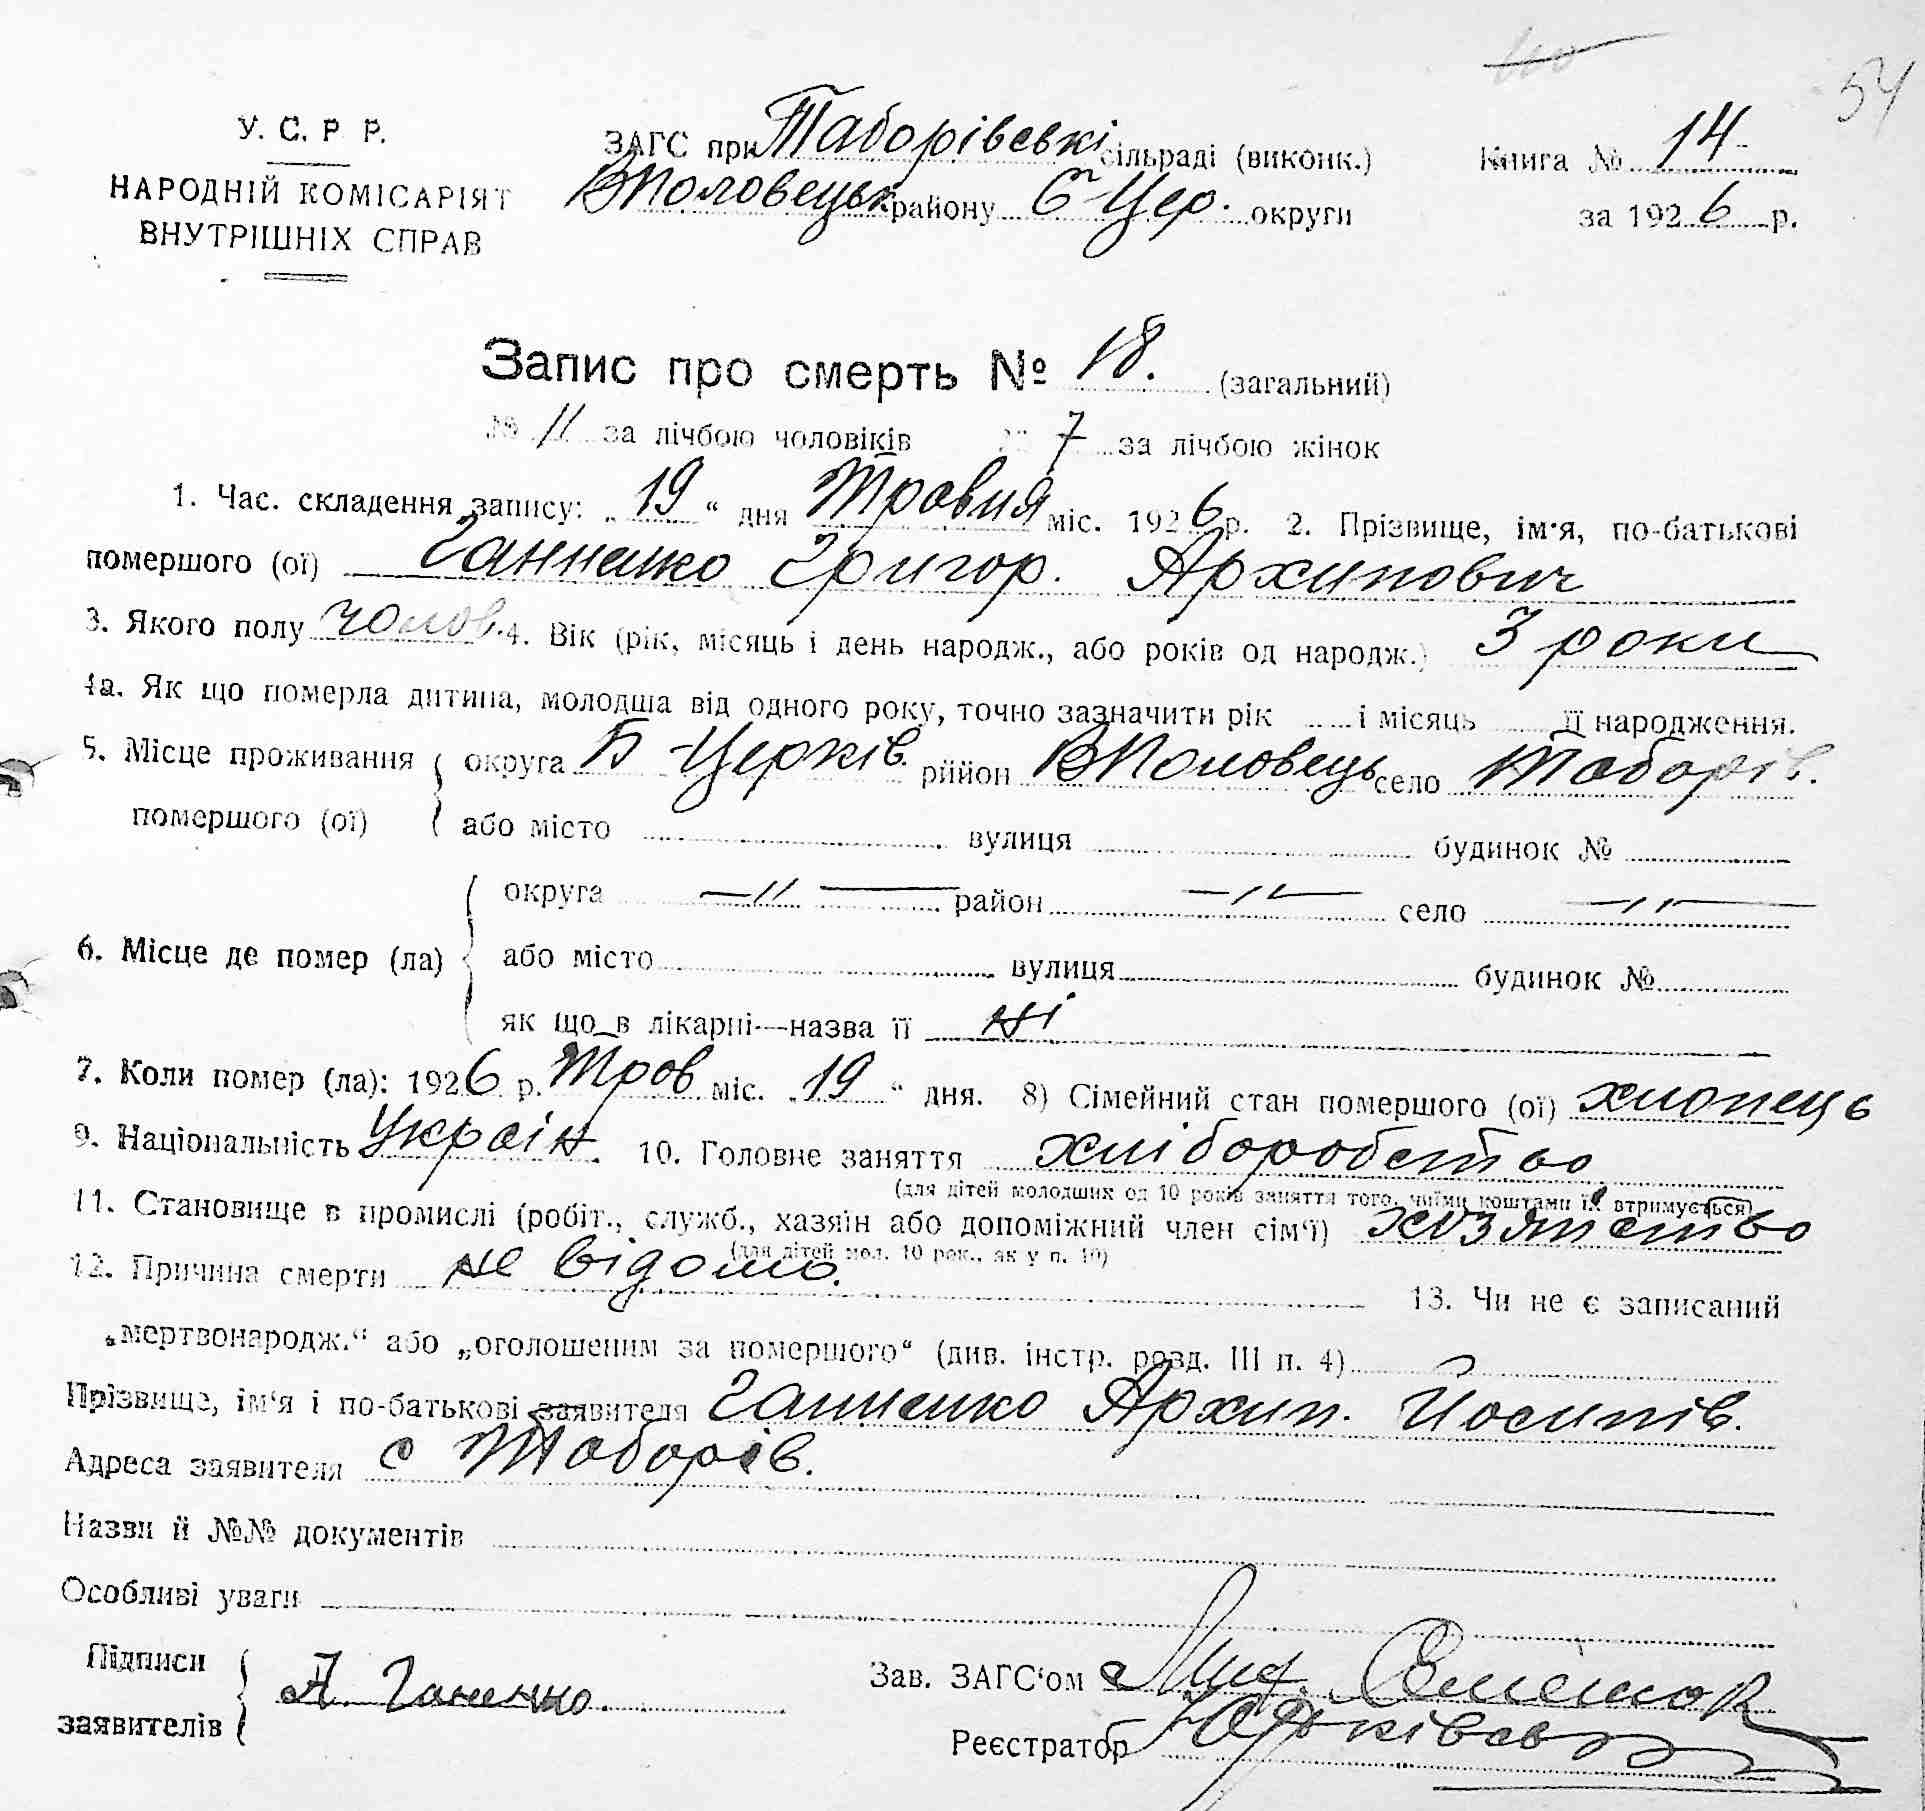 54
У. С. Р Р.
НАРОДНІЙ КОМІСАРІЯТ
ВНУТРІШНІХ СПРАВ
ЗАГС при Таборівські сільраді (виконк.)
ВПоловецьк району Б Цер. округи
Книга № 14
за 1926 р.
Запис про смерть № 18. (загальний)
№ 11 за лічбою чоловіків № 7 за лічбою жінок
1. Час. складення запису: „19“ дня Травня міс. 1926 р. 2. Прізвище, ім'я, по-батькові
помершого (ої) Ганненко Григор. Архипович
3. Якого полу чолов. 4. Вік (рік, місяць і день народж., або років од народж.) 3 роки
4а. Як що померла дитина, молодша від одного року, точно зазначити рік і місяць її народження.
5. Місце проживання помершого (ої) округа Б-Церків. рийон ВПоловець село Таборів.
або місто вулиця будинок №
6. Місце де помер (ла) округа —〃— район —〃— село —〃—
або місто вулиця будинок №
як що в лікарні—назва її ні
7. Коли помер (ла): 1926 р. Трав міс. „19“ дня. 8) Сімейний стан помершого (ої) хлопець
9. Національність Україн. 10. Головне заняття хліборобство
(для дітей молодших од 10 років заняття того, чиїми коштами їх втримується)
11. Становище в промислі (робіт., служб., хазяїн або допоміжний член сім'ї) хозяйство
(для дітей мол. 10 рок., як у п. 10)
12. Причина смерти не відомо. 13. Чи не є записаний
„мертвонародж.“ або „оголошеним за помершого“ (див. інстр. розд. III п. 4)
Прізвище, ім'я і по-батькові заявителя Ганненко Архип. Йосипів.
Адреса заявителя с Таборів.
Назви й №№ документів
Особливі уваги
Підписи заявителів А. Ганенко.
Зав. ЗАГС'ом
Реєстратор